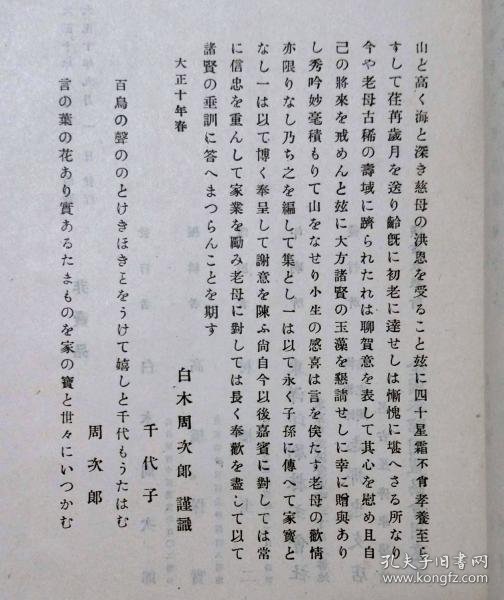 山と高く海と深き慈母の洪恩を受ること玆に四十星霜不肯孝養至ら
すして荏苒歲月を送り齡旣に初老に達せしは慚愧に堪へさる所なり
今や老母古稀の壽域に躋られたれは聊賀意を表して其心を慰め且自
己の將來を戒めんと玆に大方諸賢の玉藻を懇請せしに幸に贈與あり
し秀吟妙毫積もりて山をなせり小生の感喜は言を俟たす老母の歡情
亦限りなし乃ち之を編して集とし一は以て永く子孫に傳へて家寶と
なし一は以て博く奉呈して謝意を陳ふ尙自今以後嘉賓に對しては常
に信忠を重んして家業を勵み老母に對しては長く奉歡を盡して以て
諸賢の垂訓に答へまつらんことを期す
大正十年春
白木周次郎 謹識
千代子
百鳥の聲ののとけきほきことをうけて嬉しと千代もうたはむ
周次郎
言の葉の花あり實あるたまものを家の寶と世々にいつかむ
孔夫子旧书网
www.kongfz.com